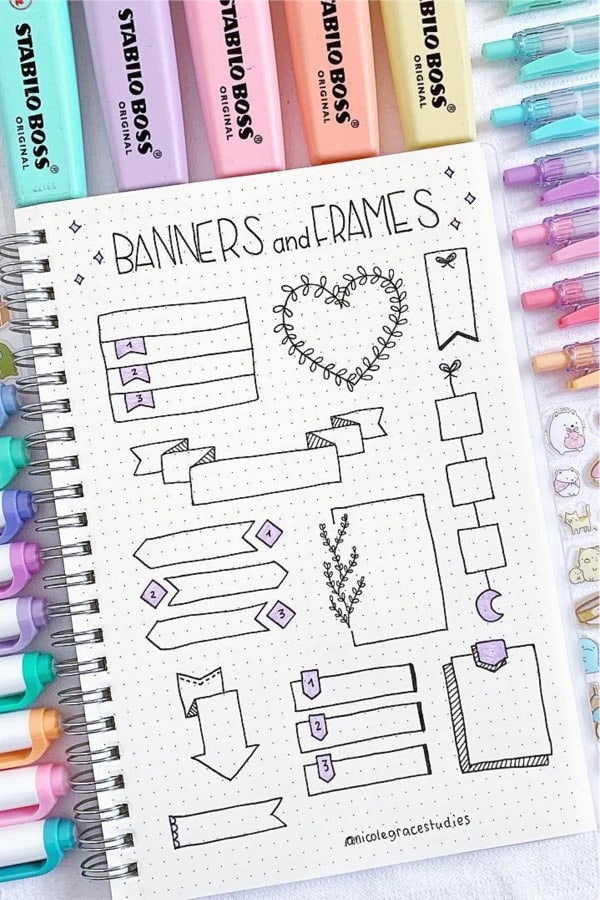 STABILO BOSS
ORIGINAL
STABILO BOSS
ORIGINAL
STABILO BOSS
ORIGINAL
STABILO BOSS
ORIGINAL
STABILO BOSS
ORIGINAL
BANNERS and FRAMES
1
2
3
1
2
3
1
2
3
@nicolegracestudies